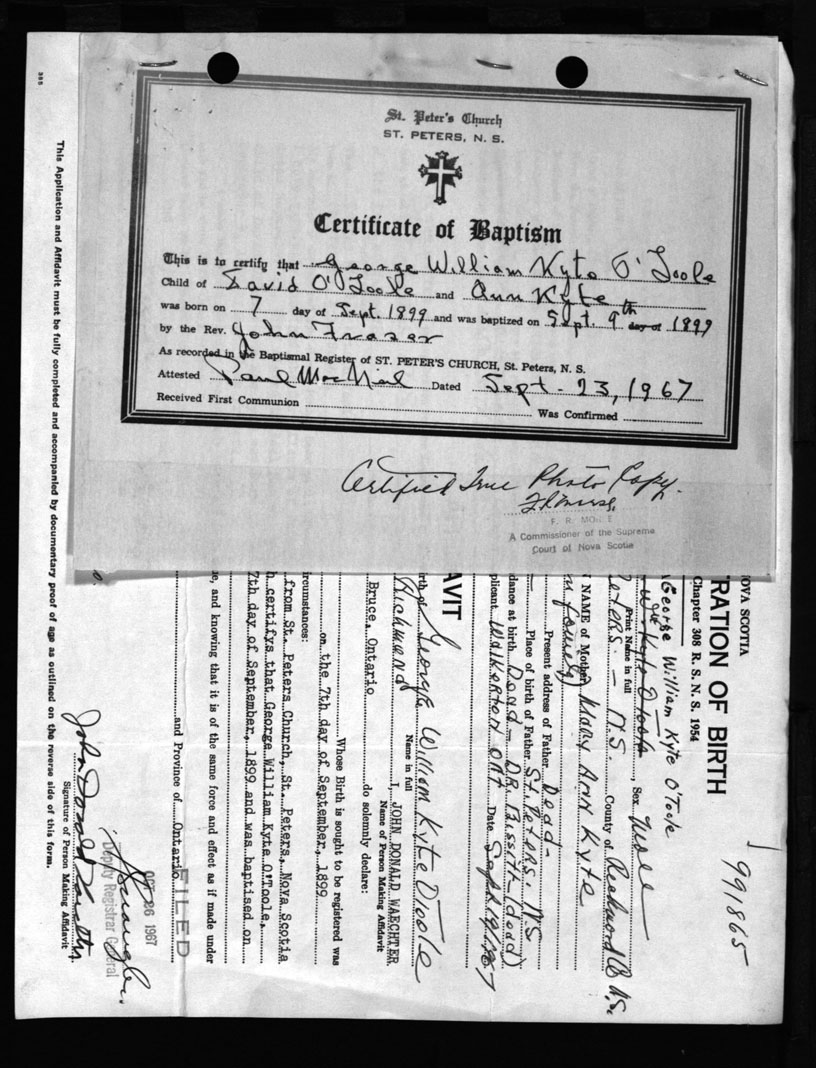 St. Peter's Church
ST. PETERS, N. S.
Certificate of Baptism
This is to certify that George William Kyte O'Toole
Child of David O'Toole and Ann Kyte
was born on 7 day of Sept. 1899 and was baptized on Sept. 9th day of 1899
by the Rev. John Fraser
As recorded in the Baptismal Register of ST. PETER'S CHURCH, St. Peters, N. S.
Attested Paul MacNeil Dated Sept. 23, 1967
Received First Communion
Was Confirmed
Certified True Photo Copy.
A Commissioner of the Supreme
Court of Nova Scotia
991865
OVA SCOTIA
TRATION OF BIRTH
Chapter 308 R. S. N. S. 1954
George William Kyte O'Toole
Wm Kyte O'Toole, Sex Male
Print Name in full
eters. - N.S. County of Richmond N.S.
NAME of Mother Mary Ann Kyte
Present address of Father Dead -
Place of birth of Father St. Peters. N.S.
dance at birth Dead - DR. Bissitt (dead)
plicant Walkerton Ont Date
AVIT
irth of George William Kyte O'Toole
Name in full
Richmond
I, JOHN DONALD WAECHTER
Name of Person Making Affidavit
Bruce, Ontario do solemnly declare:
Whose Birth is sought to be registered was
on the 7th day of September, 1899
ircumstances:
from St. Peters Church, St. Peters, Nova Scotia
h certifys that George William Kyte O'Toole,
7th day of September, 1899 and was baptised on
ue, and knowing that it is of the same force and effect as if made under
and Province of Ontario
FILED
OCT 26 1967
Deputy Registrar General
John Donald Waechter
Signature of Person Making Affidavit
This Application and Affidavit must be fully completed and accompanied by documentary proof of age as outlined on the reverse side of this form.
385